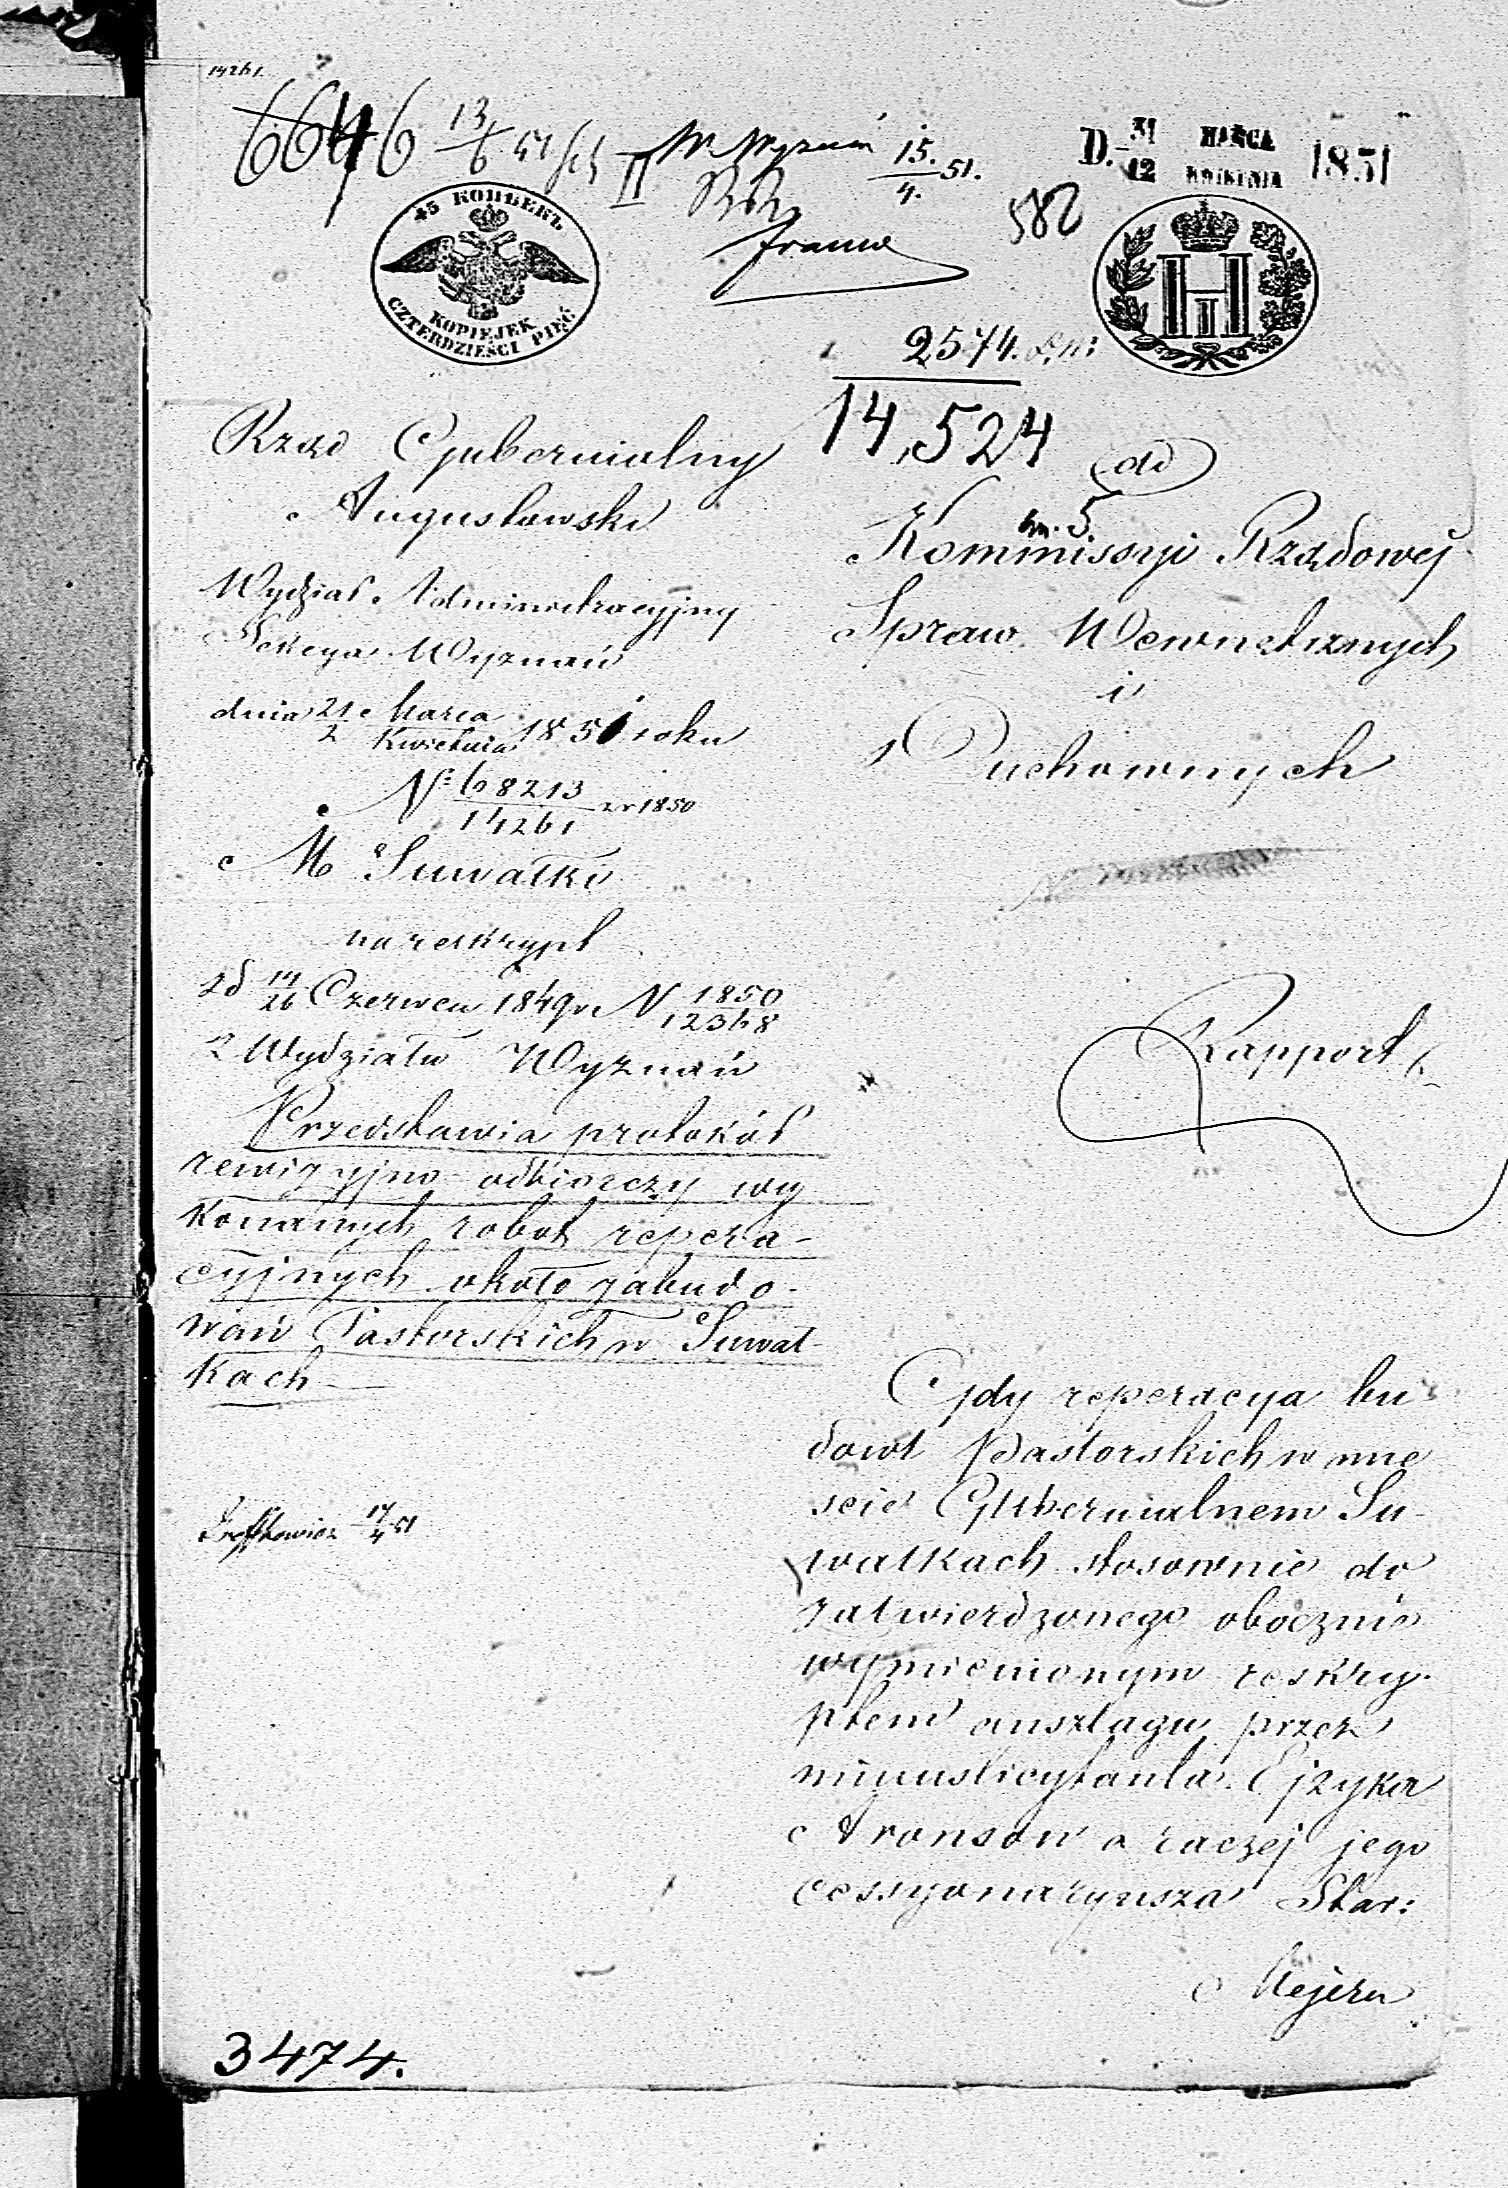 14261.
6646 13/6 51 II W. Wyznań 15./4. 51.
D. 31/12 MARCA/KWIETNIA 1851
45 КОПѢЕКЪ
KOPIEJEK
CZTERDZIEŚCI PIĘĆ
582
2574.
14,524
Rząd Gubernialny
Augustowski
Wydział Administracyjny
Sekcya Wyznań
dnia 21/2 Marca/Kwietnia 1851 roku
Nr 68213/14261 zr 1850
M Suwałki
na reskrypt
z d 14/26 Czerwca 1849 r N 1850/12368
z Wydziału Wyznań
Przedstawia protokół
rewizyjno-odbiorczy wy
konanych robot repera-
cyjnych około zabudo-
wań Pastorskich w Suwał-
kach
17/4 51
3474.
do
Kommissyi Rządowej
Spraw Wewnętrznych
i
Duchownych
Rapport
Gdy reperacya bu
dowl Pastorskich w mie
scie Gubernialnem Su-
wałkach stosownie do
zatwierdzonego obocznie
wymienionym reskry-
ptem anszlagu przez
minuslicytanta Ejzyka
Aronson a raczej jego
cessyonaryusza Star:
Mejera